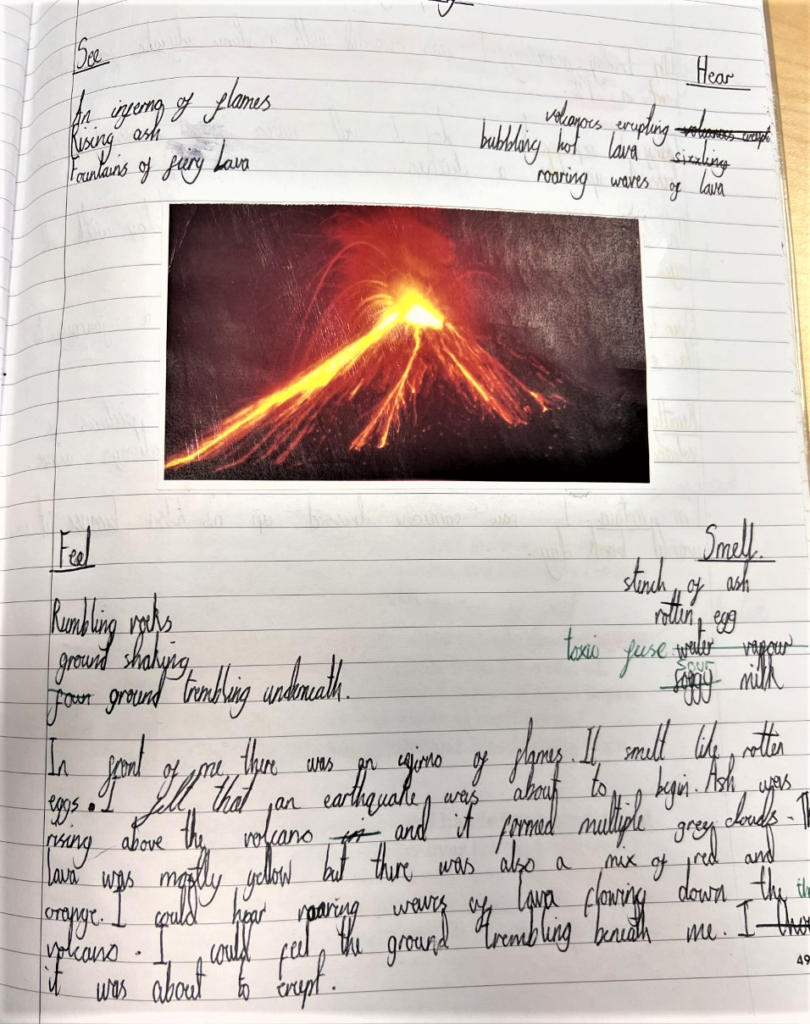 See
An inferno of flames
Rising ash
Fountains of fiery lava
Hear
volcanoes erupting volcanoes erupt
bubbling hot lava sizzling
roaring waves of lava
Feel
Rumbling rocks
ground shaking
ground trembling underneath.
Smell.
stench of ash
rotten egg
toxic fuse water vapour
sour
soggy milk
In front of me there was an inferno of flames. It smelt like rotten
eggs. I felt that an earthquake was about to begin. Ash was
rising above the volcano and it formed multiple grey clouds.
lava was mostly yellow but there was also a mix of red and
orange. I could hear roaring waves of lava flowing down the
volcano. I could feel the ground trembling beneath me. I
it was about to erupt.
49